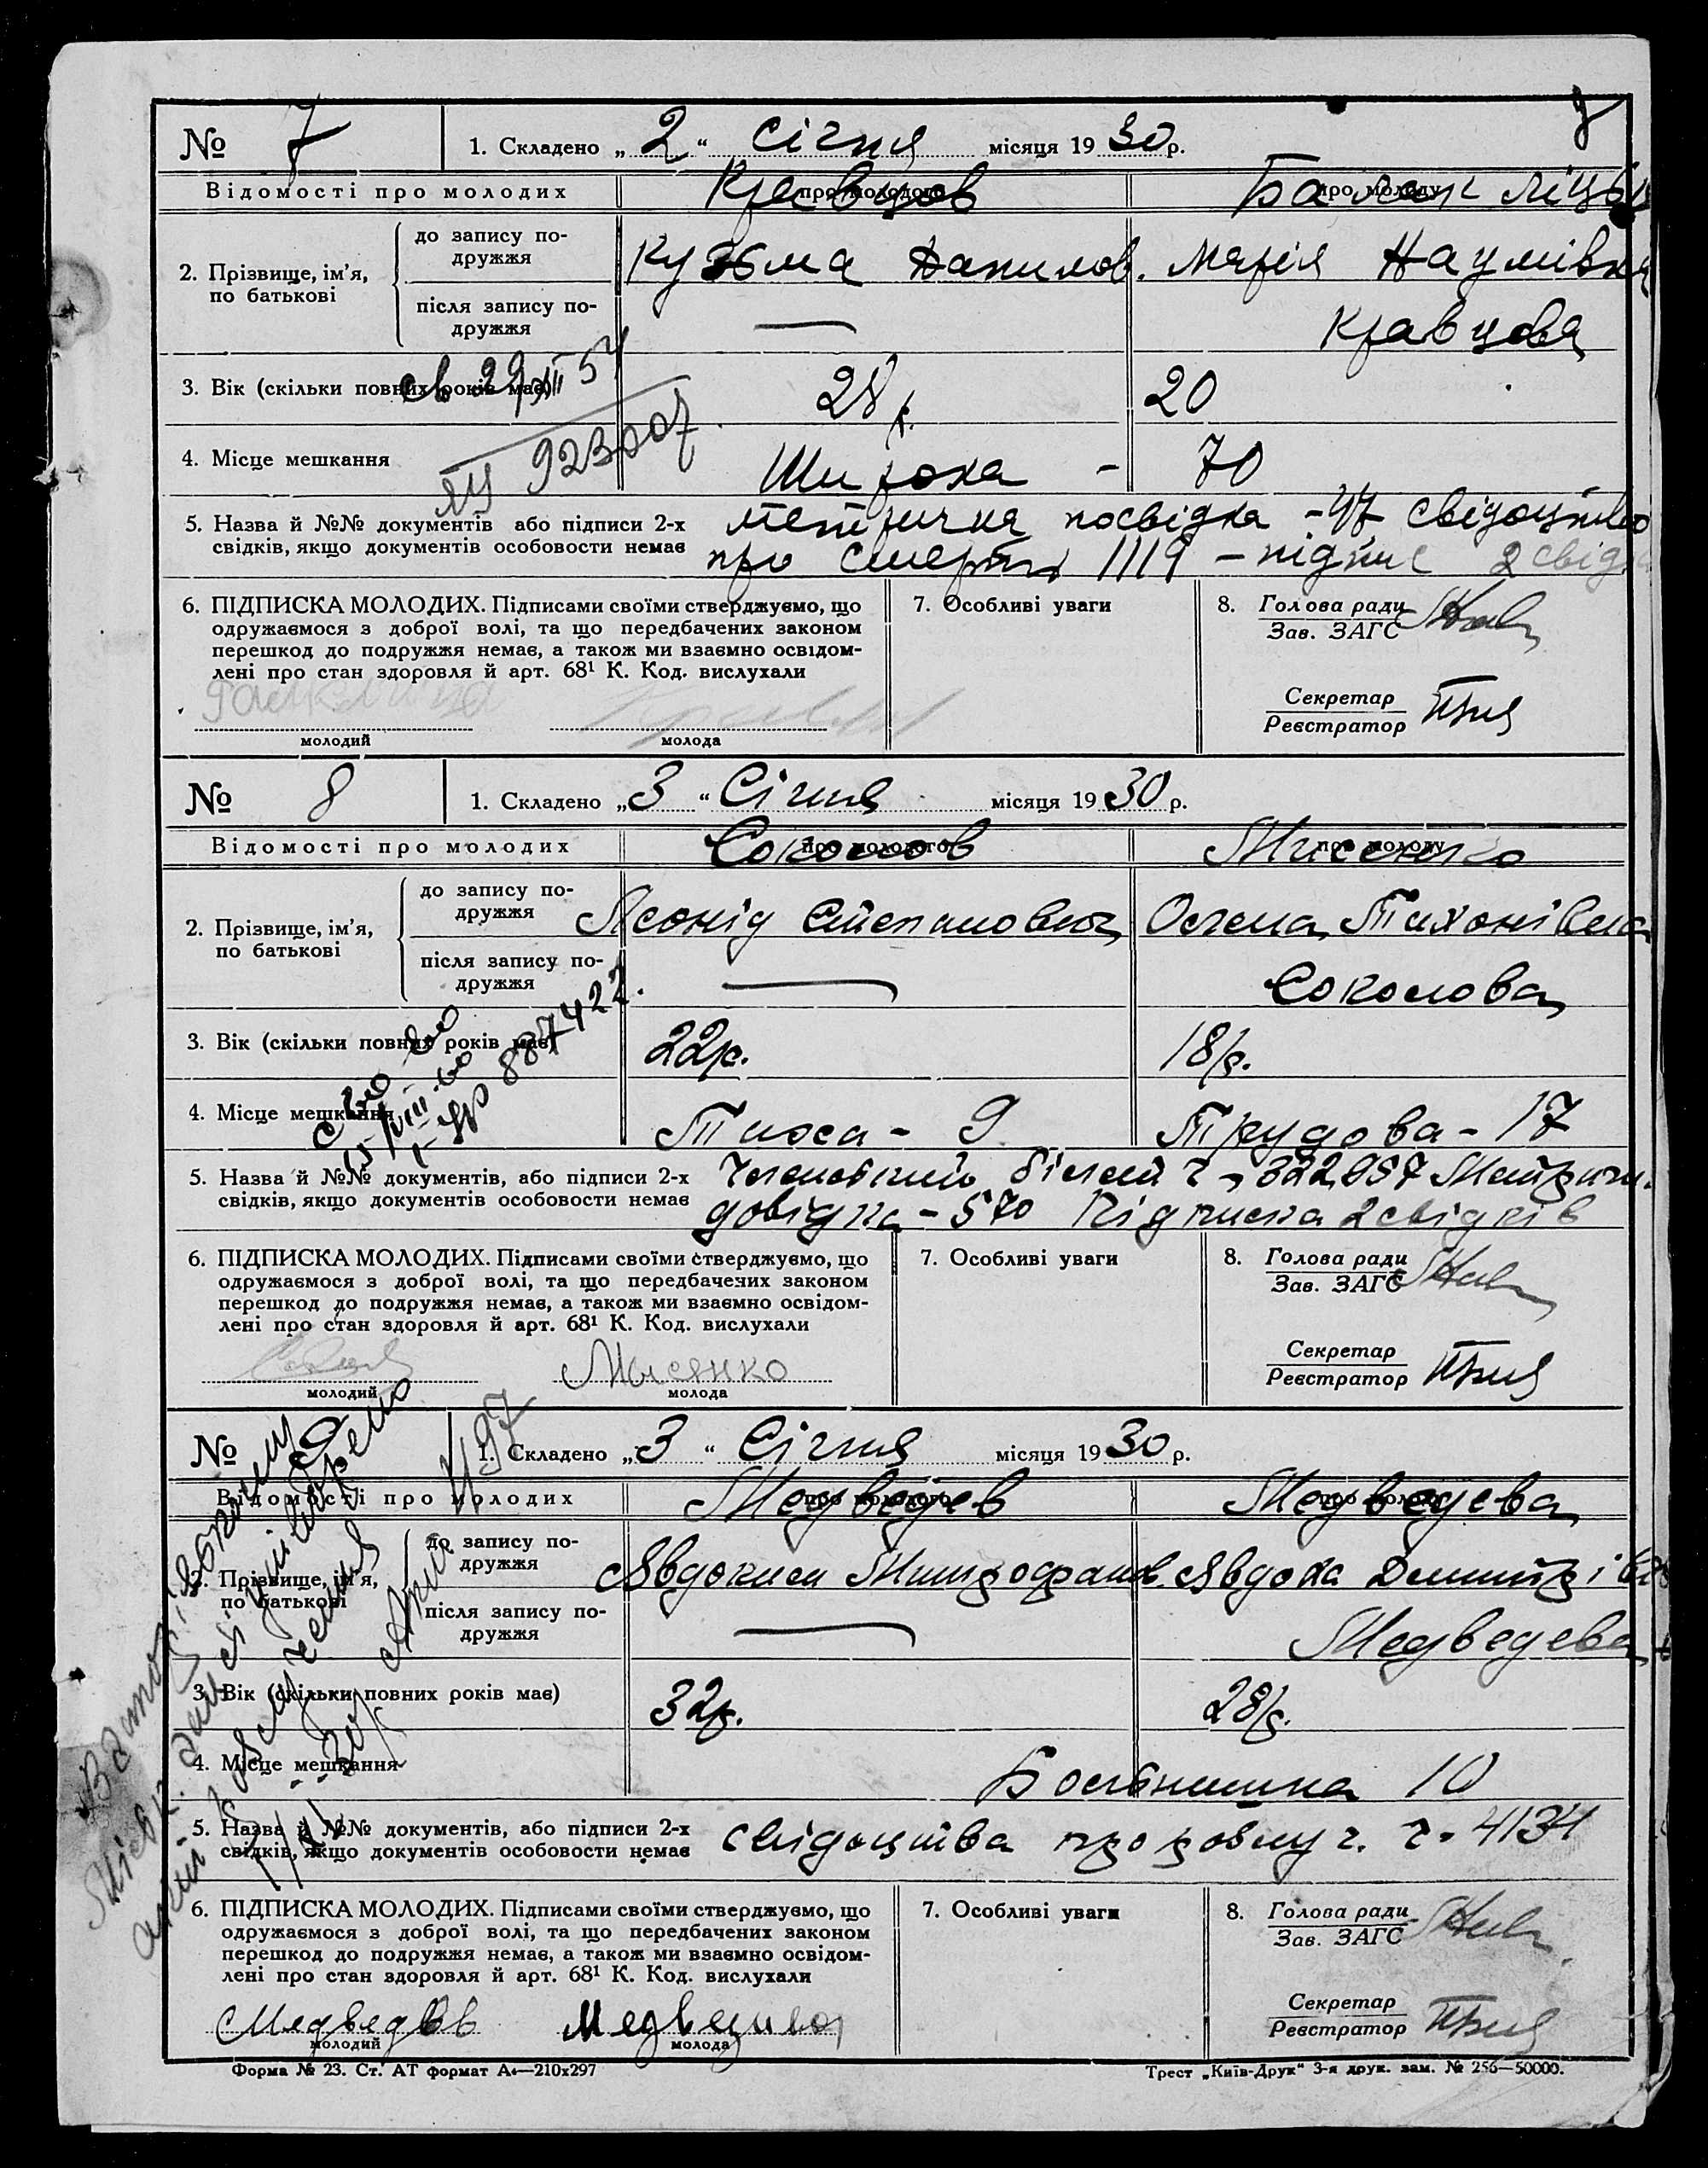 7
№ 7 1. Складено „2“ Січня місяця 1930р.
Відомості про молодих про молодого про молоду
Кравцов
2. Прізвище, ім’я, по батькові
до запису подружжя
Кузьма Данилов. Марія Наумівна
після запису подружжя
— Кравцова
3. Вік (скільки повних років має) 28 р. 20
св 29/XII 54
923007
4. Місце мешкання Широка - 70
5. Назва й №№ документів або підписи 2-х Метрична посвідка - 47 свідоцтво
свідків, якщо документів особовости немає про смерть 1119 - підпис 2 свід
6. ПІДПИСКА МОЛОДИХ. Підписами своїми стверджуємо, що
одружаємося з доброї волі, та що передбачених законом
перешкод до подружжя немає, а також ми взаємно освідом-
лені про стан здоровля й арт. 68¹ К. Код. вислухали
молодий молода
7. Особливі уваги
8. Голова ради
Зав. ЗАГС
Секретар
Реєстратор
№ 8 1. Складено „3“ Січня місяця 1930р.
Відомості про молодих про молодого про молоду
Соколов Мисенко
2. Прізвище, ім’я, по батькові
до запису подружжя
Леонід Степанович Олена Тихонівна
після запису подружжя
— Соколова
3. Вік (скільки повних років має) 22р. 18р.
887422
4. Місце мешкання Тиха - 9 Трудова - 17
5. Назва й №№ документів, або підписи 2-х Членський білет ч. 322957 Метричн.
свідків, якщо документів особовости немає довідка - 570 Підписка 2 свідків
6. ПІДПИСКА МОЛОДИХ. Підписами своїми стверджуємо, що
одружаємося з доброї волі, та що передбачених законом
перешкод до подружжя немає, а також ми взаємно освідом-
лені про стан здоровля й арт. 68¹ К. Код. вислухали
Мысенко
молодий молода
7. Особливі уваги
8. Голова ради
Зав. ЗАГС
Секретар
Реєстратор
№ 9 1. Складено „3“ Січня місяця 1930р.
Відомості про молодих про молодого про молоду
Медведев Медведева
2. Прізвище, ім’я, по батькові
до запису подружжя
Явдоким Митрофанов. Явдоха Дмитрівна
після запису подружжя
— Медведева
3. Вік (скільки повних років має) 32р. 28р.
4. Місце мешкання Больнична 10
5. Назва й №№ документів, або підписи 2-х свідоцтва про розлуч. ч. 4134
свідків, якщо документів особовости немає
6. ПІДПИСКА МОЛОДИХ. Підписами своїми стверджуємо, що
одружаємося з доброї волі, та що передбачених законом
перешкод до подружжя немає, а також ми взаємно освідом-
лені про стан здоровля й арт. 68¹ К. Код. вислухали
Медведев Медведива
молодий молода
7. Особливі уваги
8. Голова ради
Зав. ЗАГС
Секретар
Реєстратор
Форма № 23. Ст. АТ формат А₄—210x297 Трест „Київ-Друк“ 3-я друк. зам. № 256—50000.